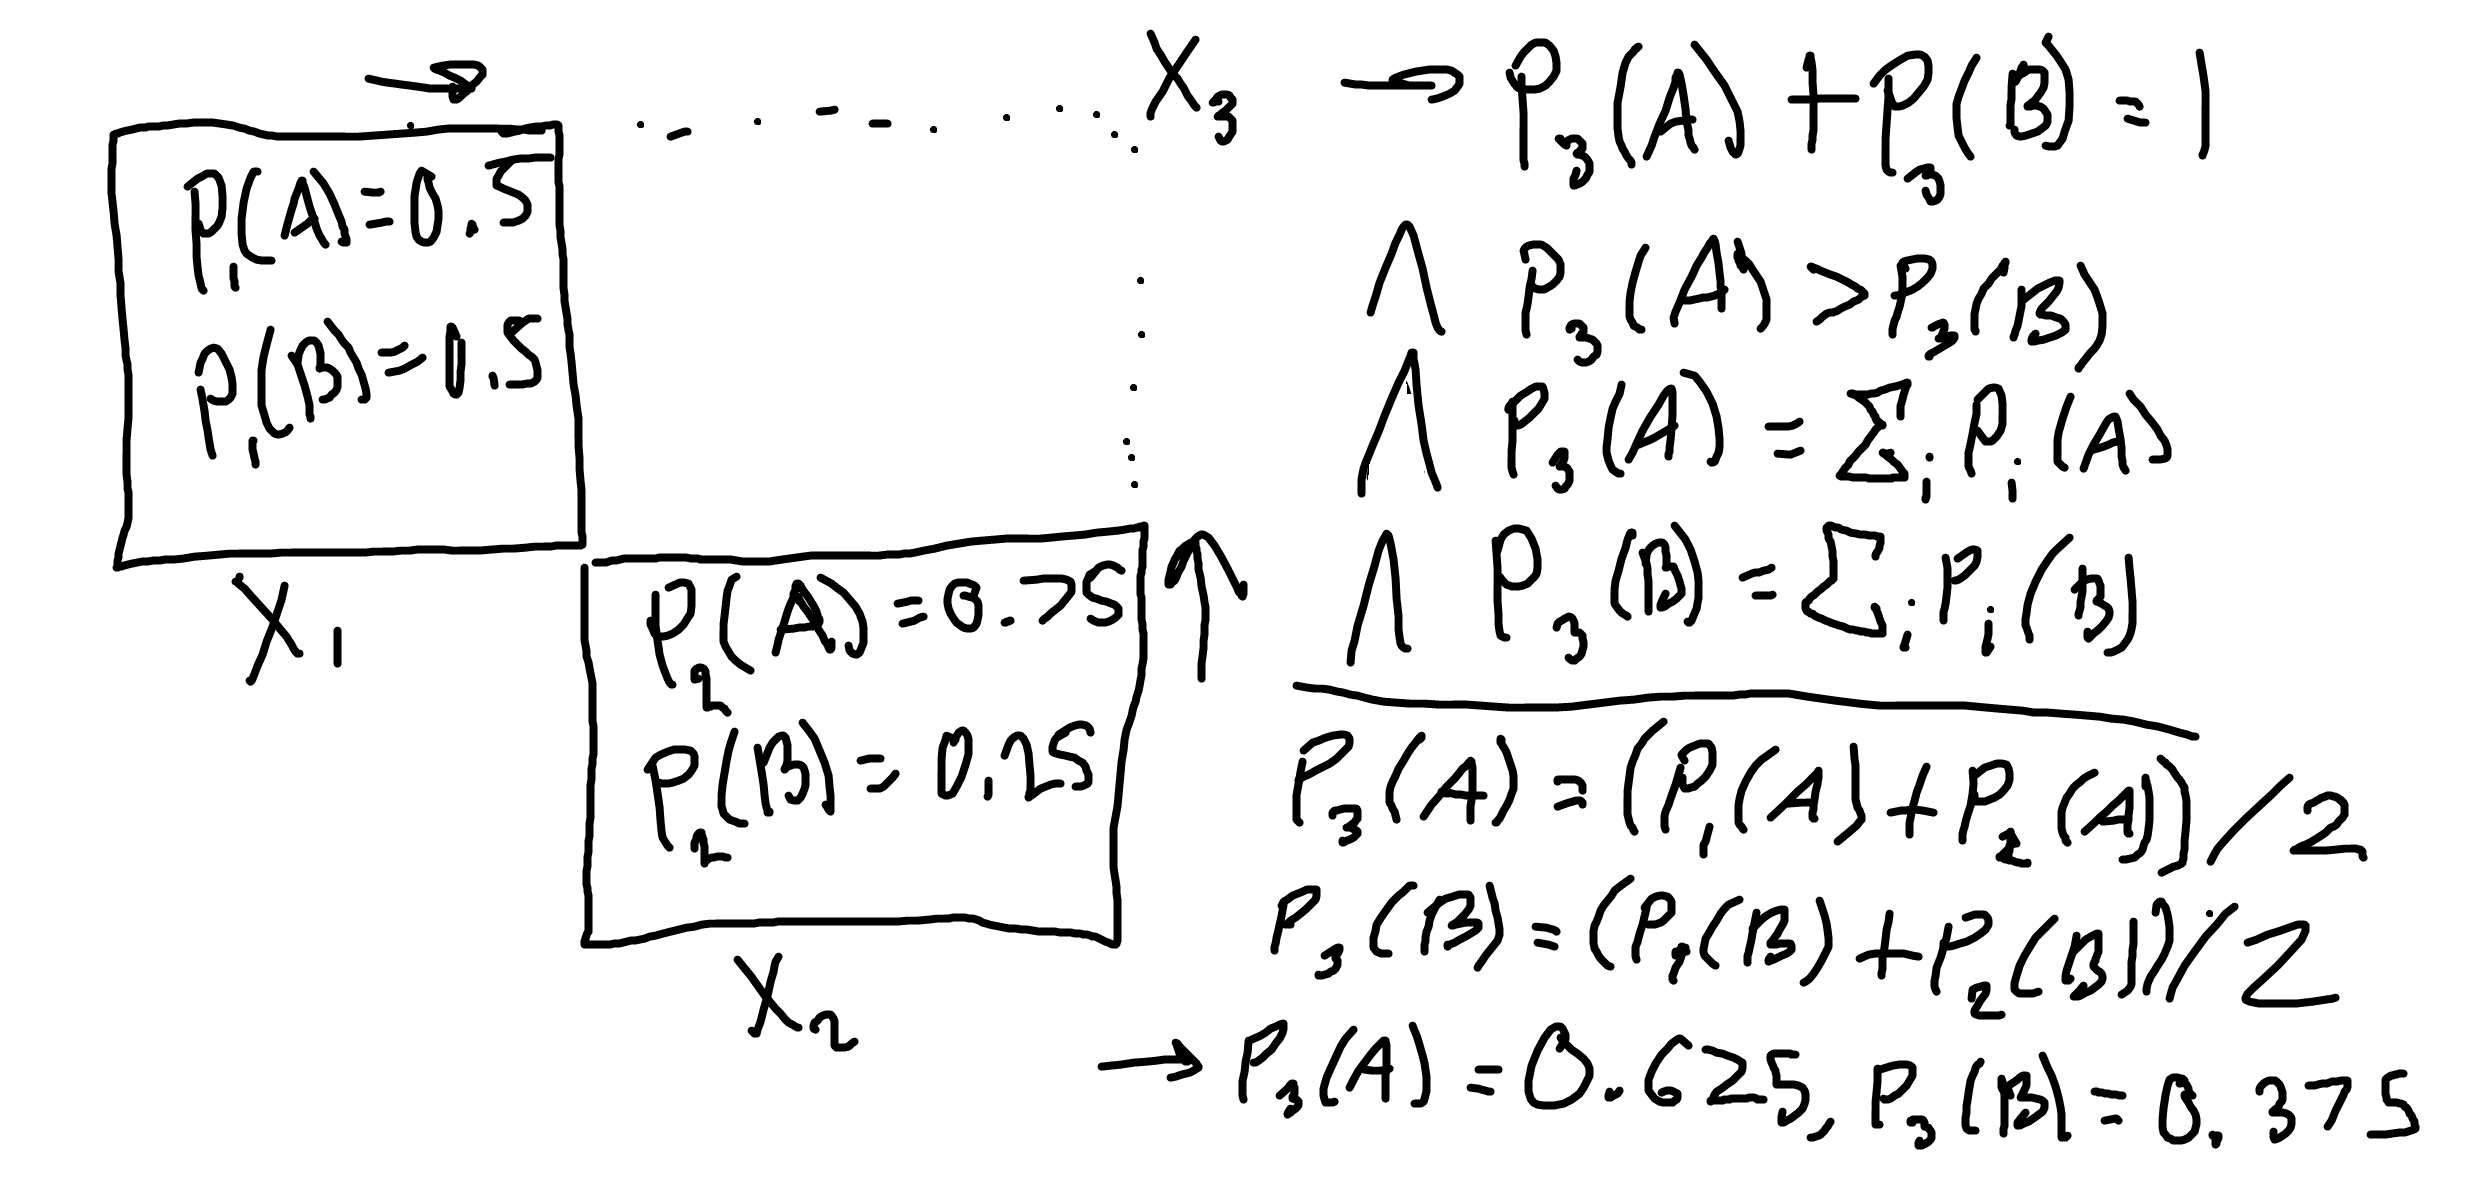 P₁(A)=0.5
P₁(B)=0.5
X₁
P₂(A)=0.75
P₂(B)=0.25
X₂
X₃ → P₃(A)+P₃(B)=1
∧ P₃(A)>P₃(B)
∧ P₃(A)=Σᵢ Pᵢ(A)
∧ P₃(B)=Σᵢ Pᵢ(B)
P₃(A)=(P₁(A)+P₂(A))/2
P₃(B)=(P₁(B)+P₂(B))/2
→ P₃(A)=0.625, P₃(B)=0.375